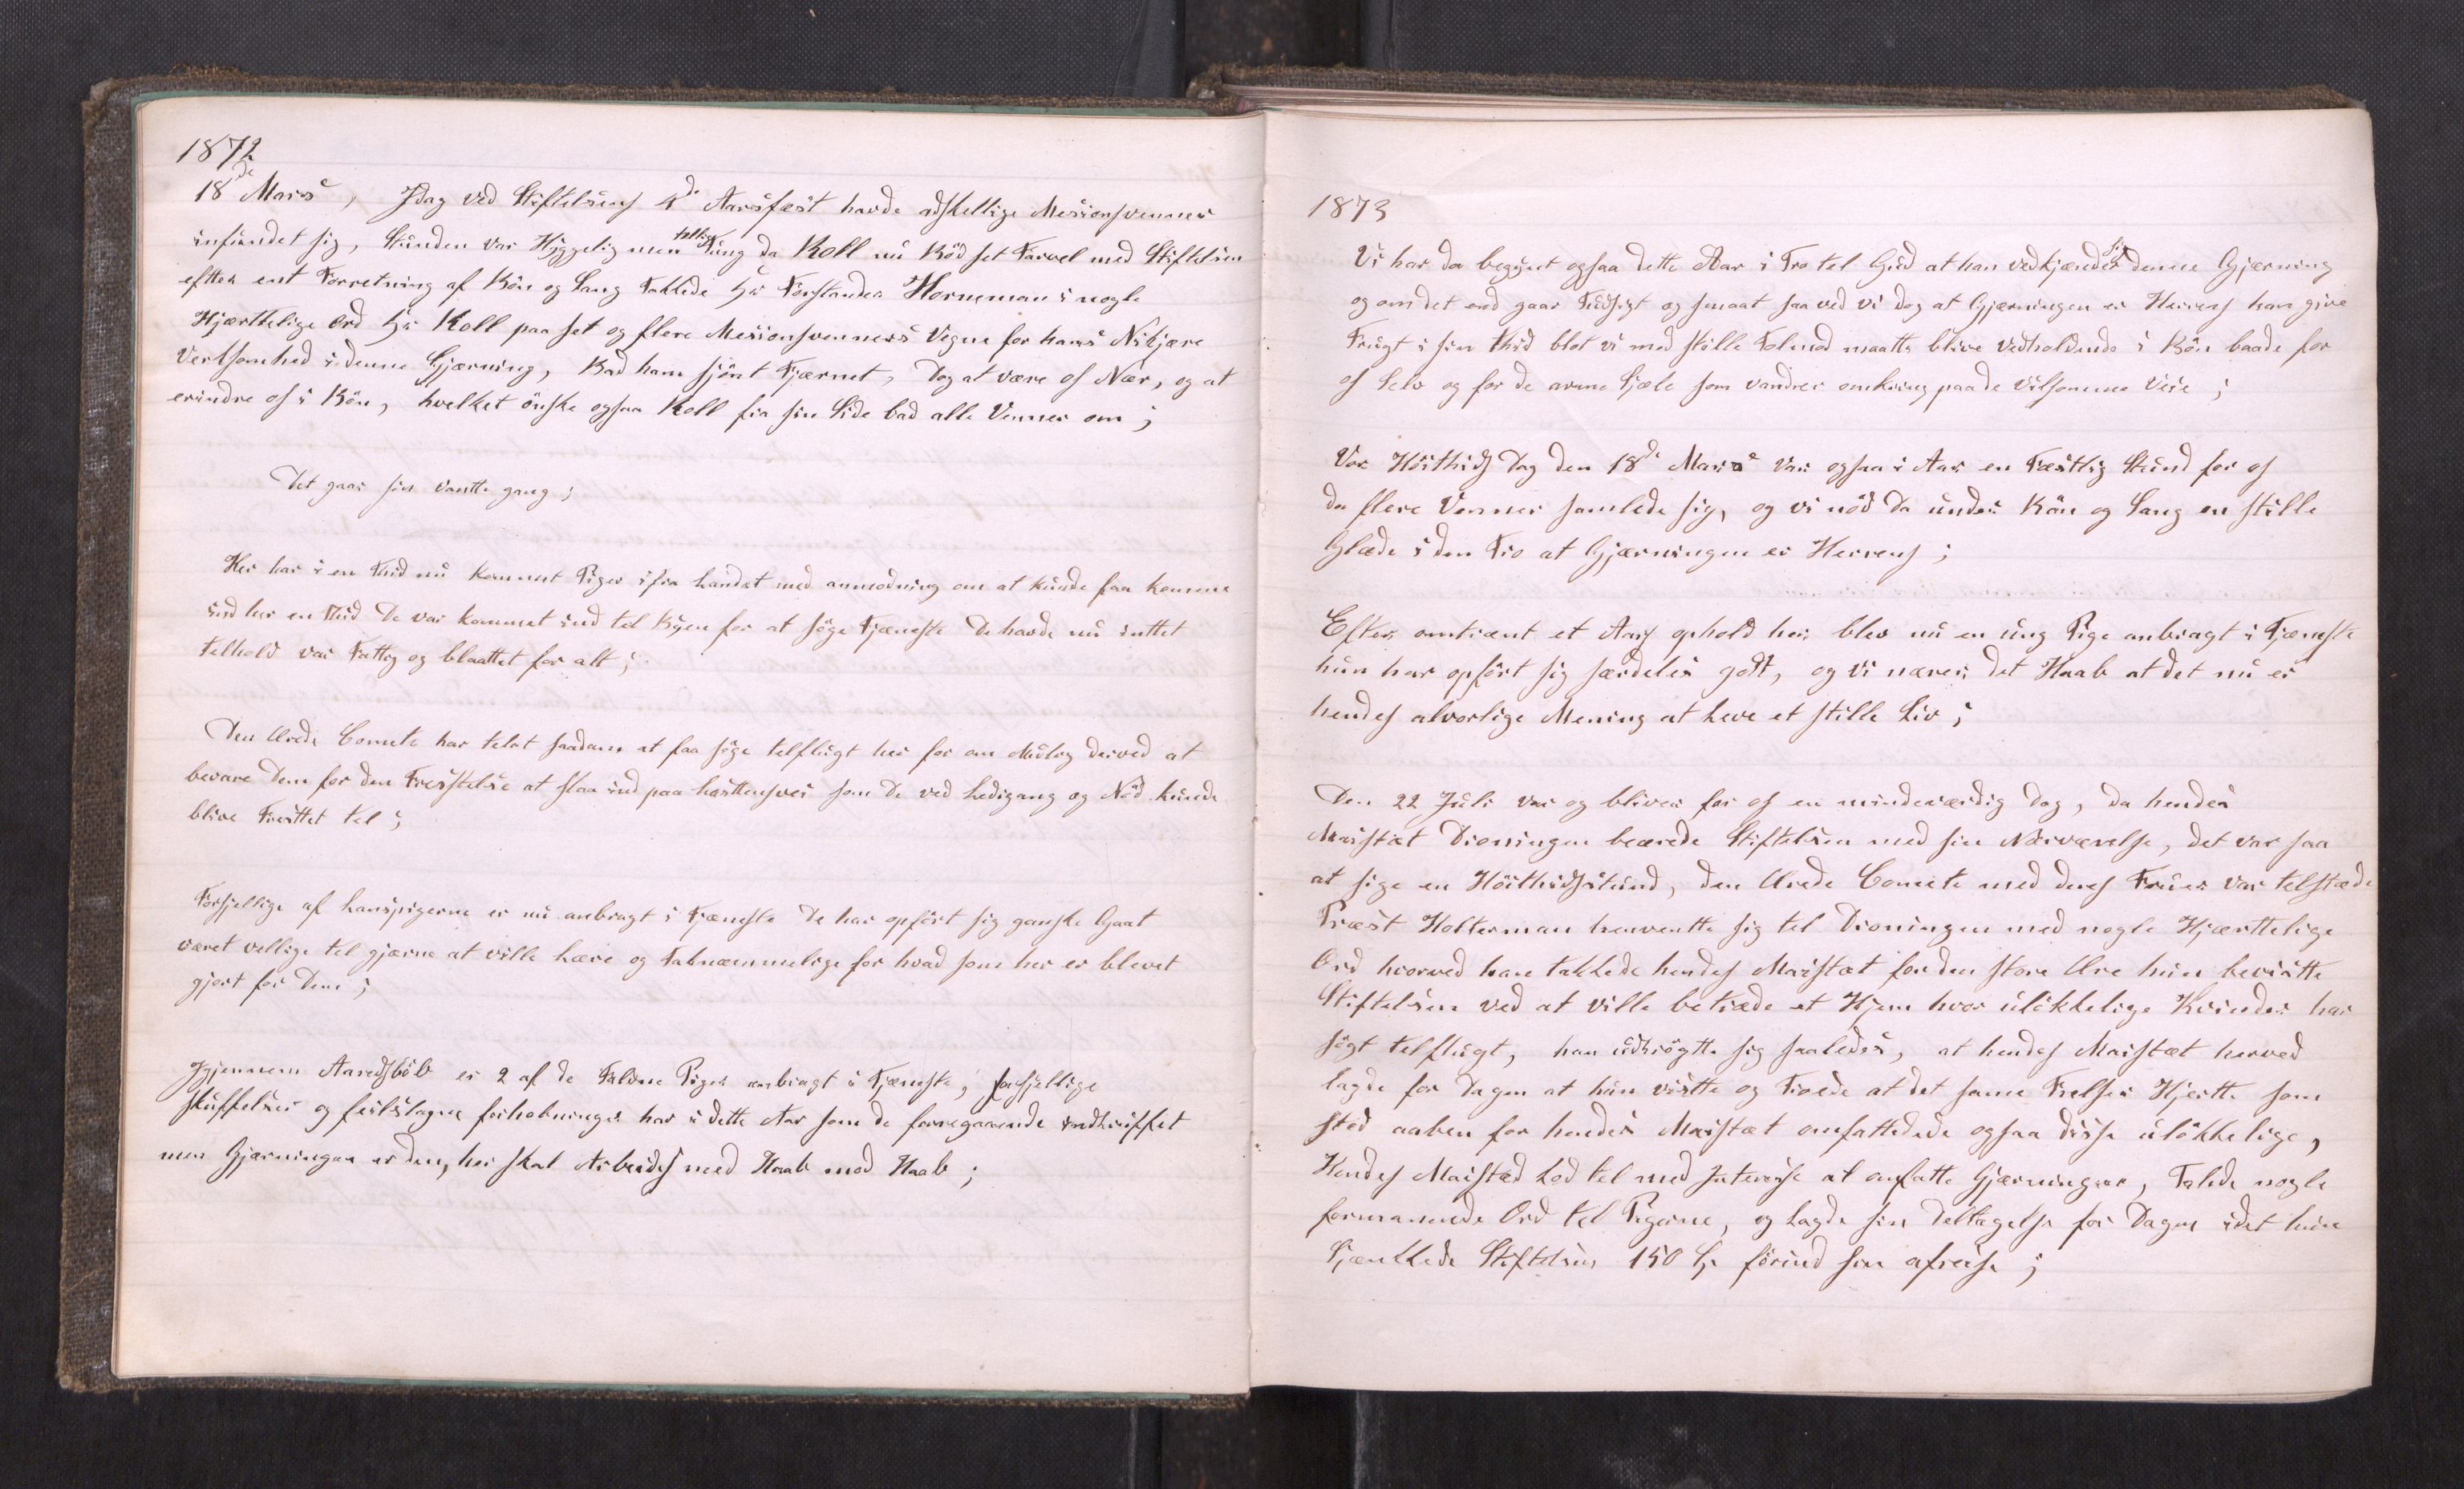 1872
18de Mars, Idag ved Stiftelsens 4de Aarsfæst havde adskellige Mesionsvenner
infundet sig, Stunden var Hyggelig men tellige Tung da Koll nu Böd set Farvel med Stiftelsen
efter ent Forretning af Bön og Sang Takkede Hr Forstander Horneman i nogle
Hjærttelige Ord Hr Koll paa set og flere Mesionsvenners Vegne for hans Nikjære
Verksomhed i denne Gjærning, Bad ham sjönt Fjærnet, Dog at være os Nær, og at
erindre os i Bön, hvelket önske ogsaa Koll fra sin Side bad alle Venner om;
Det gaar sin vantte gang;
Her har i en Thid nu kommet Piger ifra Landet med anmodning om at kunde faa komme
ind her en Thid De var kommet ind tel Byen for at söge Tjæneste De havde nu inttet
telhold var Fattig og blaattet for alt;
Den Ærede Comete har telat saadane at faa söge telflugt her for om Mulog derved at
bevare Dem for den Fresstelse at slaa ind paa Lasttensvei som De ved Ledigang og Nöd kunde
blive Fresttet tel;
Forsjellige af Lanspigerne er nu anbragt i Tjæneste De har opfört sig ganske Gaat
været vellige tel gjærne at ville Lære og Taknæmmelige for hvad som her er blevet
gjort for Dem;
Igjennem Aaredsböb er 2 af de Faldne Piger anbragt i Tjæneste, forsjellige
skuffelser og feilslagne forhobninger har i dette Aar som de forregaaende indtruffet
men Gjærningen er den, her skal Arbeides med Haab mod Haab;
1873
Vi har da begynt ogsaa dette Aar i Tro tel Gud at han vedkjænder sig denne Gjærning
og om det end gaar Tudsigt og smaat saa ved vi dog at Gjærningen er Herrens han give
Frugt i sin Thid blot vi med stille Tolmod maatte blive vedholdende i Bön baade for
os Selv og for de arme Sjæle som vandrer omkring paa de vilsomme Veie;
Vor Höithids Dag den 18de Mars var ogsaa i Aar en Fæstlig Stund for os
da flere Venner samlede sig, og vi nöd da under Bön og Sang en stille
Glæde i den Tro at Gjærningen er Herrens;
Efter omtrænt et Aars ophold her, blev nu en ung Pige anbragt i Tjæneste
hun har opfört sig særdeles godt, og vi nærer det Haab at det nu er
hendes alvorlige Mening at Leve et stille Liv;
Den 22 Juli var og bliver for os en mindeværdig Dag, da hendes
Maistæt Droningen beærede Stiftelsen med sin Nærværelse, det var saa
at sige en Höithidsstund, den Ærede Comete med deres Fruer var telstæde
Præst Holterman henventte sig tel Droningen med nogle Hjærttelige
Ord hvorved han takkede hendes Maistæt for den store Ære hun bevistte
Stiftelsen ved at ville betræde et Hjem hvor ulökkelige Kvinder har
sögt telflugt, han udtrögtte sig saaledes, at hendes Maistæt herved
lagde for Dagen at hun vistte og Troede at det same Frelser Hjertte som
stod aaben for hendes Maistæt omfattedede ogsaa disse ulökkelige,
Hendes Maistæd Lod tel med Interesse at omfatte Gjærningen, Talede nogle
formanende Ord tel Pigerne, og Lagde sin Deltagelse for Dagen idet hun
Sjænkkede Stiftelsen 150 Sp förind sin afreise;